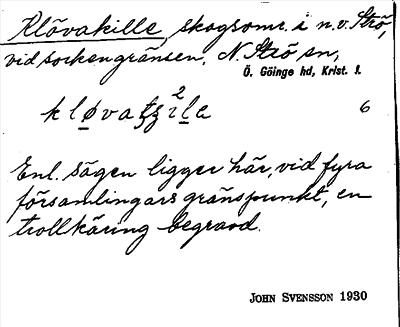 Klövakille, skogsomr. i n.v. Strö,
vid sockengränsen. N. Strö sn,
Ö. Göinge hd, Krist. l.
2
kløvatʒile 6
Enl. sägen ligger här, vid fyra
församlingars gränspunkt, en
trollkäring begravd.
JOHN SVENSSON 1930